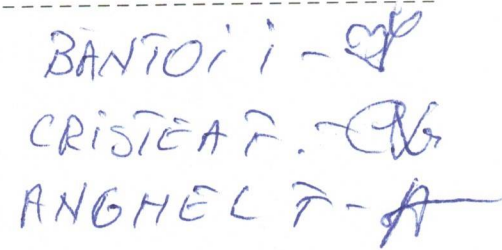 BANTOI I -
CRISTEA F. -
ANGHEL F -